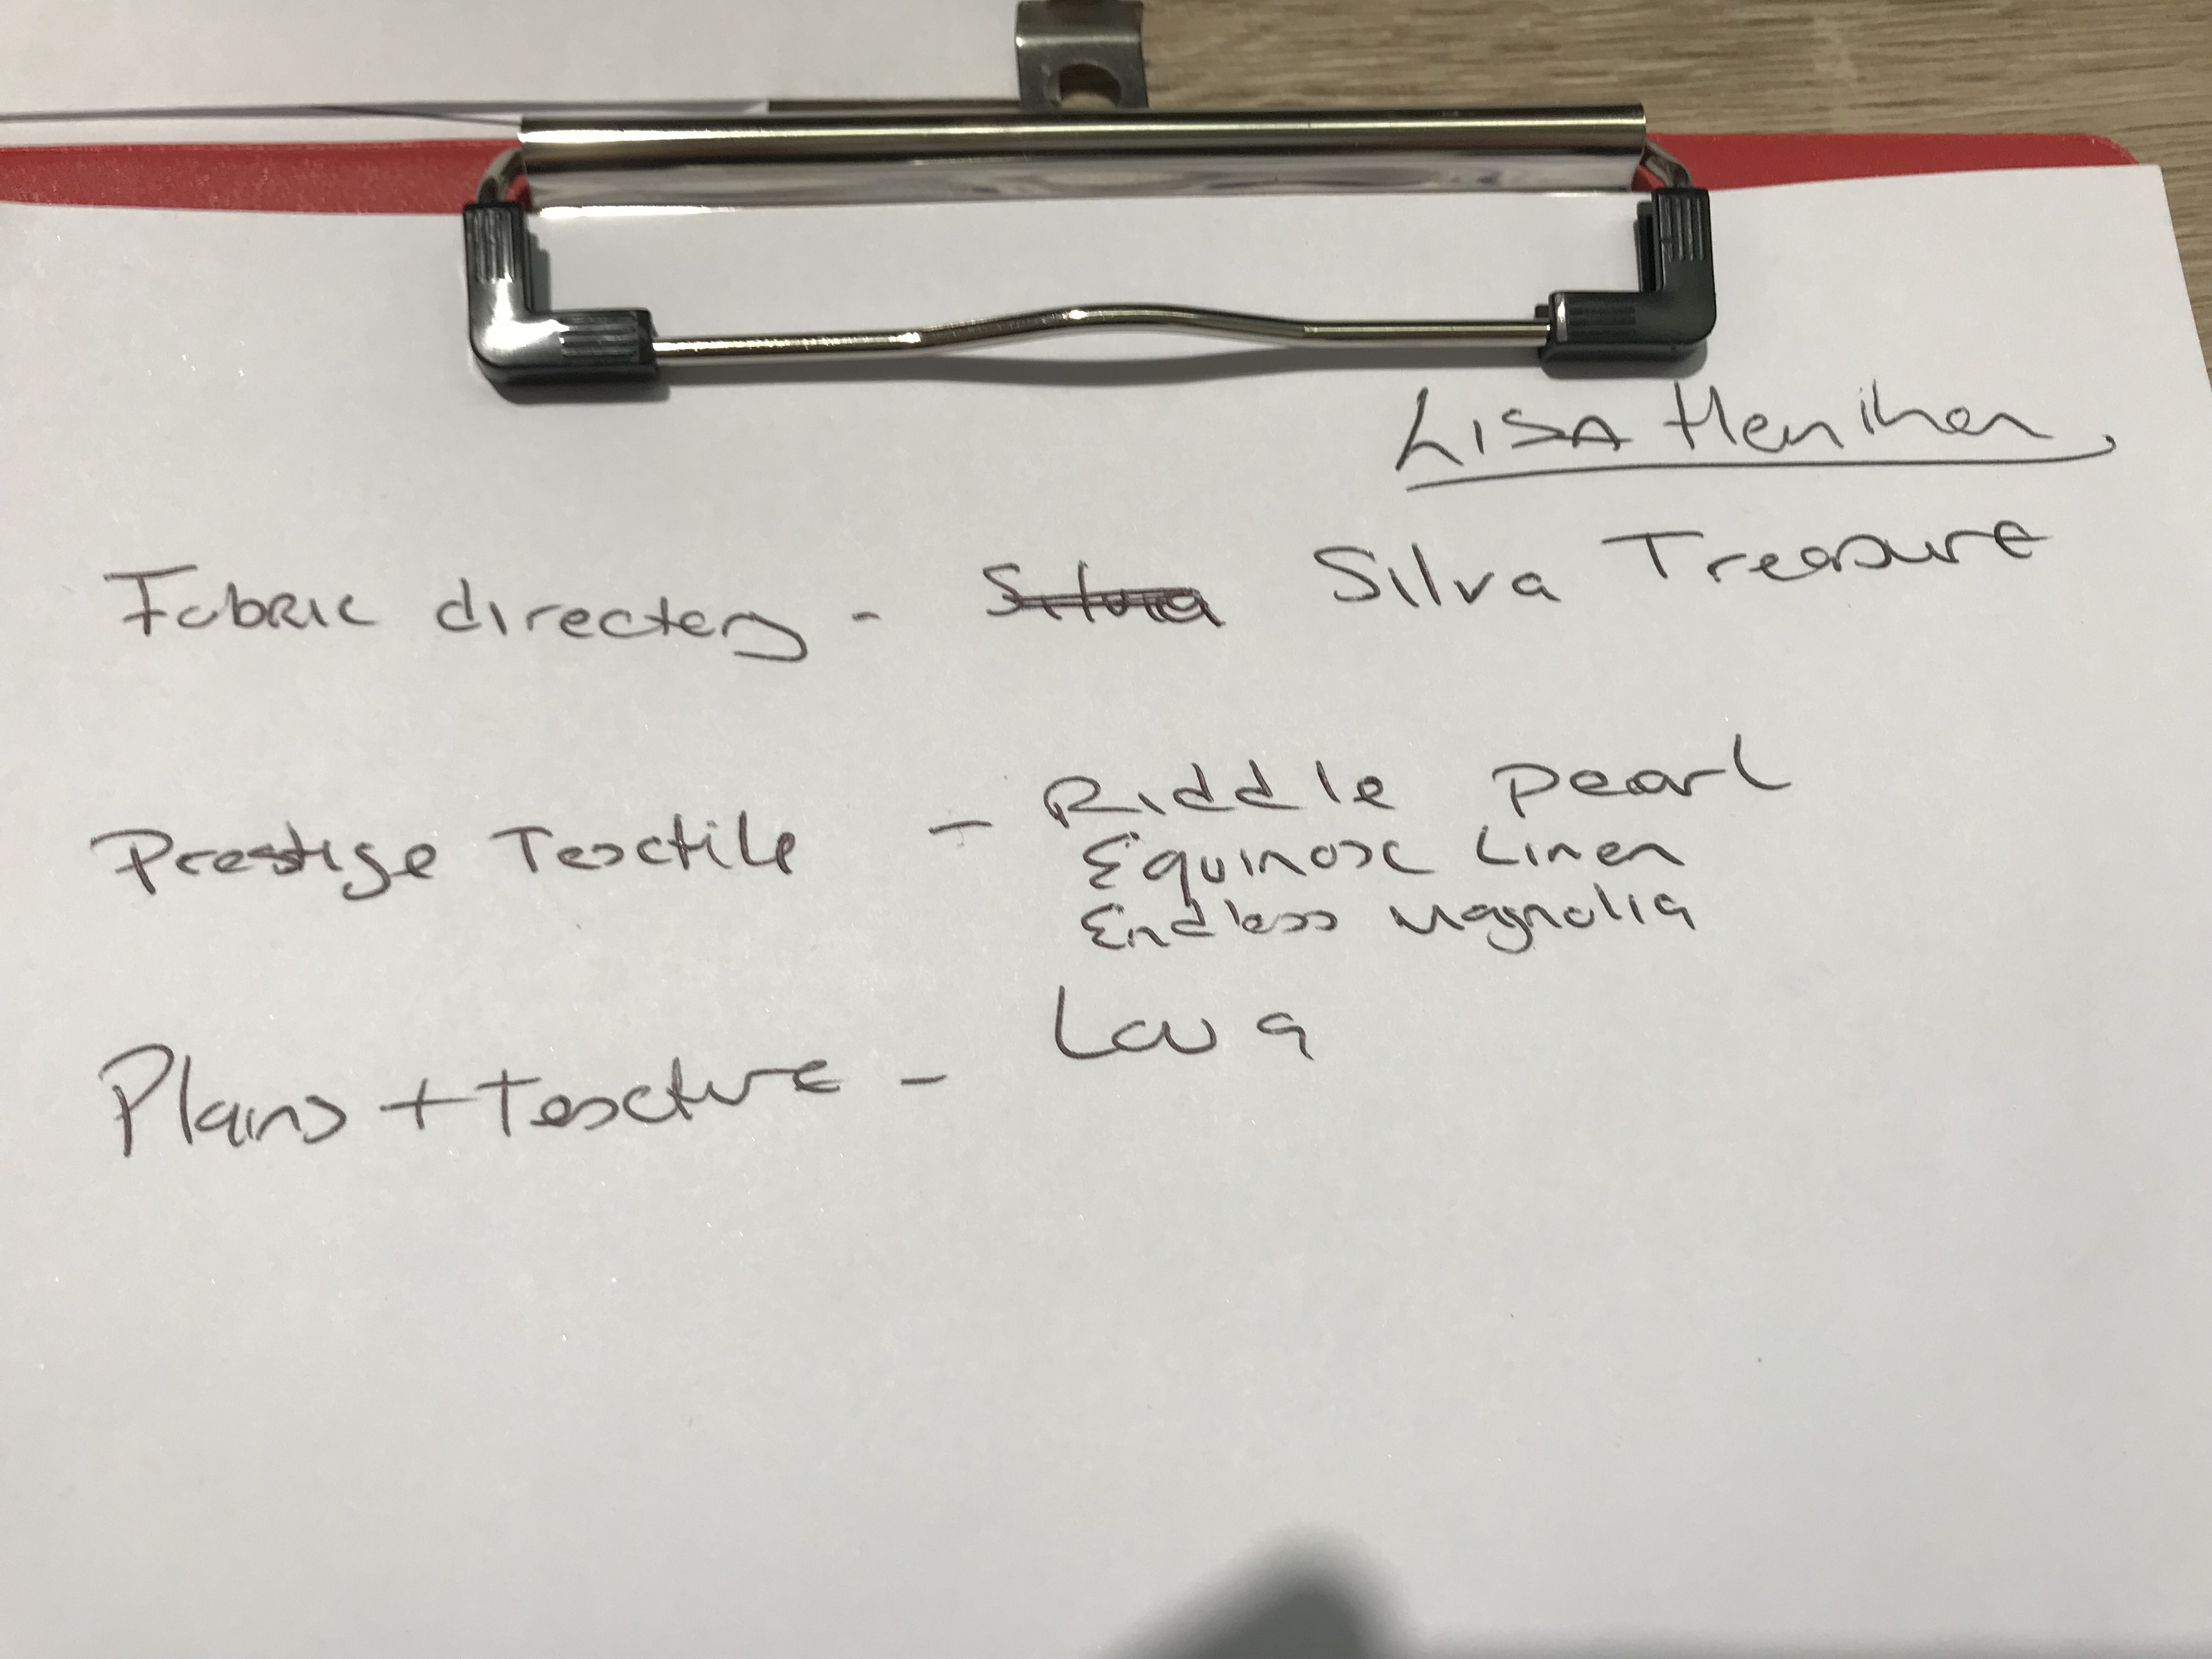 LISA Henihan
Fabric directory - Silva Silva Treasure
Prestige Textile - Riddle pearl
Equinox Linen
Endless Magnolia
Plains + Texture - Lava